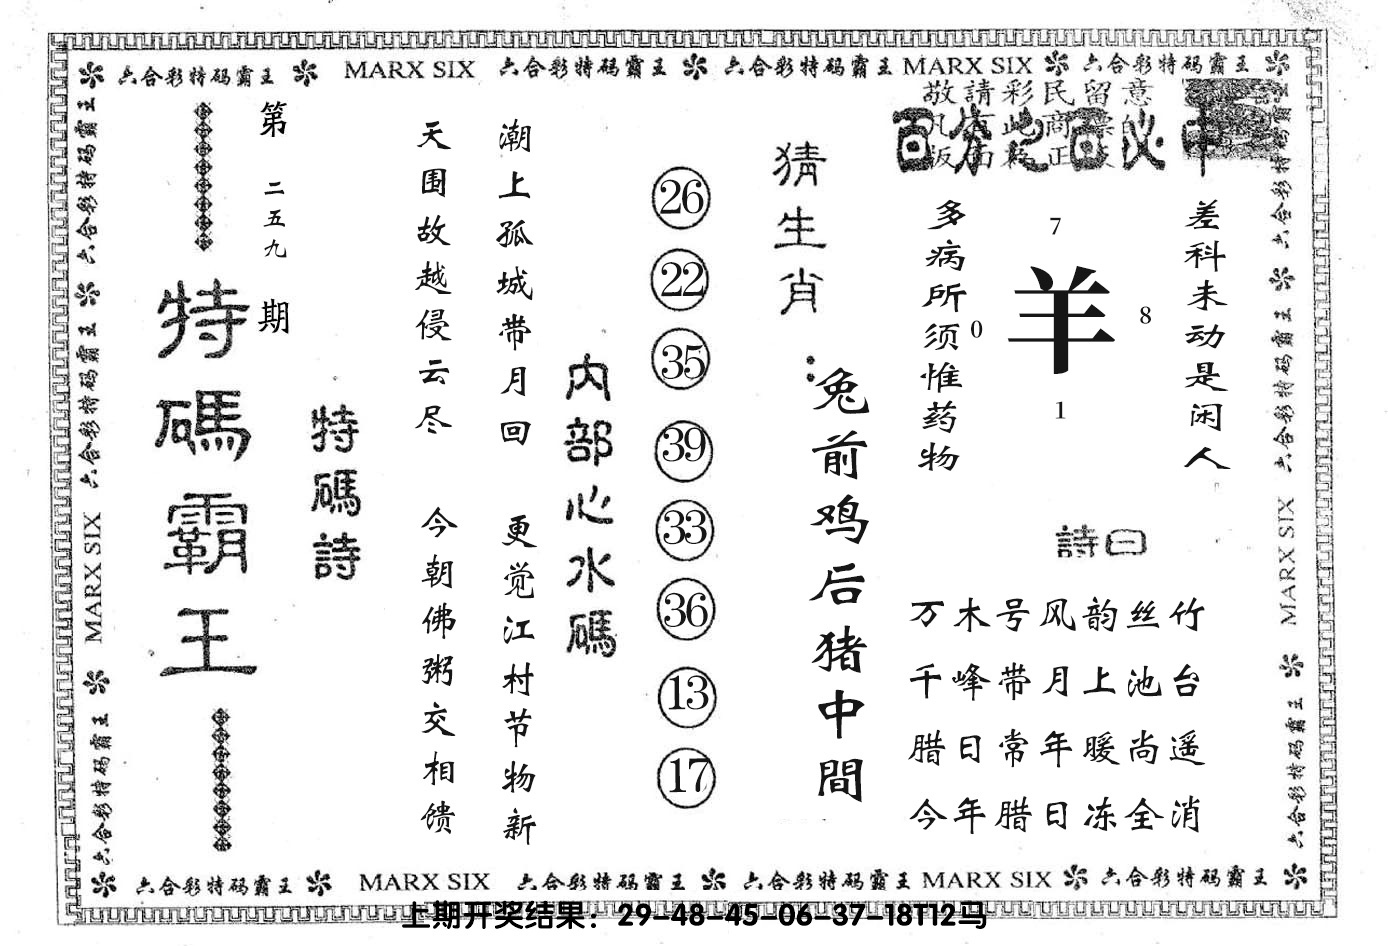 六合彩特码霸王 MARX SIX 六合彩特码霸王 六合彩特码霸王 MARX SIX 六合彩特码霸王
敬請彩民留意
百分之百必中
第二五九期
特碼霸王
特碼詩
天围故越侵云尽
今朝佛粥交相馈
潮上孤城带月回
更觉江村节物新
内部心水碼
26
22
35
39
33
36
13
17
猜生肖：
兔前鸡后猪中間
多病所须惟药物
7
0
羊
8
1
差科未动是闲人
詩曰
万木号风韵丝竹
千峰带月上池台
腊日常年暖尚遥
今年腊日冻全消
六合彩特码霸王 六合彩特码霸王 MARX SIX 六合彩特码霸王
六合彩特码霸王 六合彩特码霸王 MARX SIX 六合彩特码霸王
六合彩特码霸王 MARX SIX 六合彩特码霸王 六合彩特码霸王 MARX SIX 六合彩特码霸王
上期开奖结果：29-48-45-06-37-18T12马